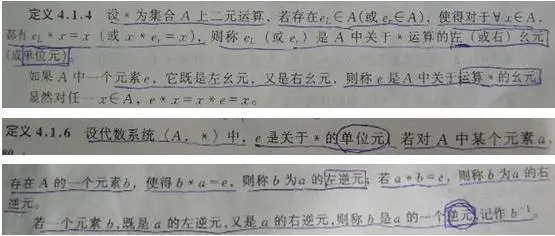 定义 4.1.4 设 * 为集合 A 上二元运算,若存在 eL∈A(或 er∈A),使得对于∀x∈A,
都有 eL * x = x (或 x * er = x),则称 eL (或 er) 是 A 中关于 * 运算的左(或右)幺元
(或单位元)
如果 A 中一个元素 e,它既是左幺元,又是右幺元,则称 e 是 A 中关于运算 * 的幺元
显然对任一 x∈A, e * x = x * e = x。
定义 4.1.6 设代数系统〈A, *〉中,e 是关于 * 的单位元,若对 A 中某个元素 a,
存在 A 的一个元素 b,使得 b * a = e,则称 b 为 a 的左逆元;若 a * b = e,则称 b 为 a 的右
逆元。
若一个元素 b,既是 a 的左逆元,又是 a 的右逆元,则称 b 是 a 的一个逆元,记作 b⁻¹。